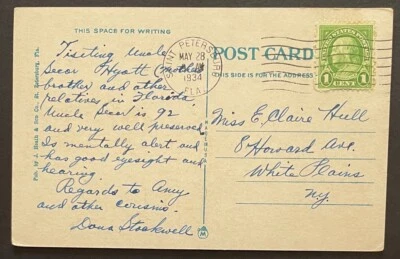 THIS SPACE FOR WRITING
Visiting Uncle
Secor Hyatt (mother's
brother and other
relatives in Florida
Uncle Secor is 92
and very well preserved
Is mentally alert and
has good eyesight and
hearing.
Regards to Amy
and other cousins.
Dana Stockwell
SAINT PETERSBURG
MAY 28
1934
FLA.
POST CARD
THIS SIDE IS FOR THE ADDRESS
1 CENT 1
Miss E. Claire Hull
8 Howard Ave.
White Plains
N.Y.